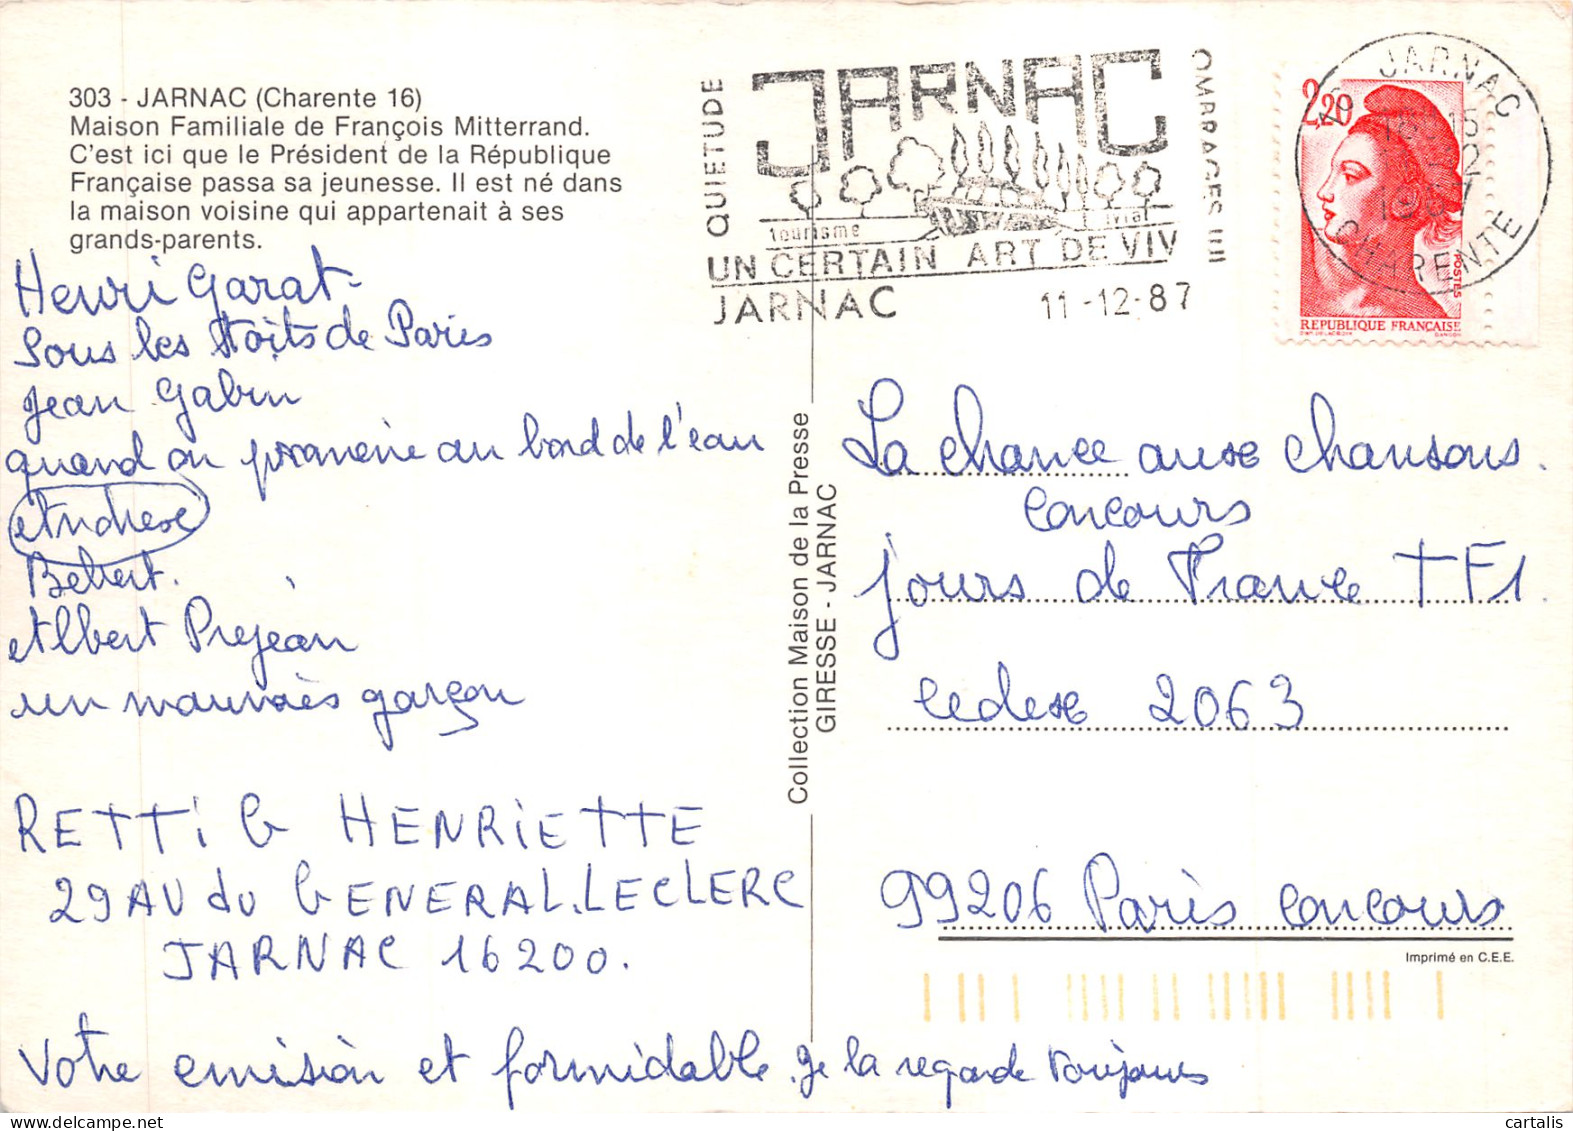 303 - JARNAC (Charente 16)
Maison Familiale de François Mitterrand.
C'est ici que le Président de la République
Française passa sa jeunesse. Il est né dans
la maison voisine qui appartenait à ses
grands-parents.
QUIETUDE
JARNAC
OMBRAGES
tourisme
fluvial
UN CERTAIN ART DE VIV
JARNAC 11-12-87
2,20
JARNAC
1987
CHARENTE
POSTES
REPUBLIQUE FRANÇAISE
Henri Garat
Sous les toits de Paris
Jean Gabin
quand on promene au bord de l'eau
Andrex
Bebert.
Albert Prejean
un mauvais garçon
RETTIG HENRIETTE
29 AV du GENERAL.LECLERC
JARNAC 16200.
Votre emision et formidable. Je la regarde toujours
Collection Maison de la Presse
GIRESSE - JARNAC
La chance aux chansons.
concours
jours de France TF1.
cedex 2063
99206 Paris concours
Imprimé en C.E.E.
cartalis.com